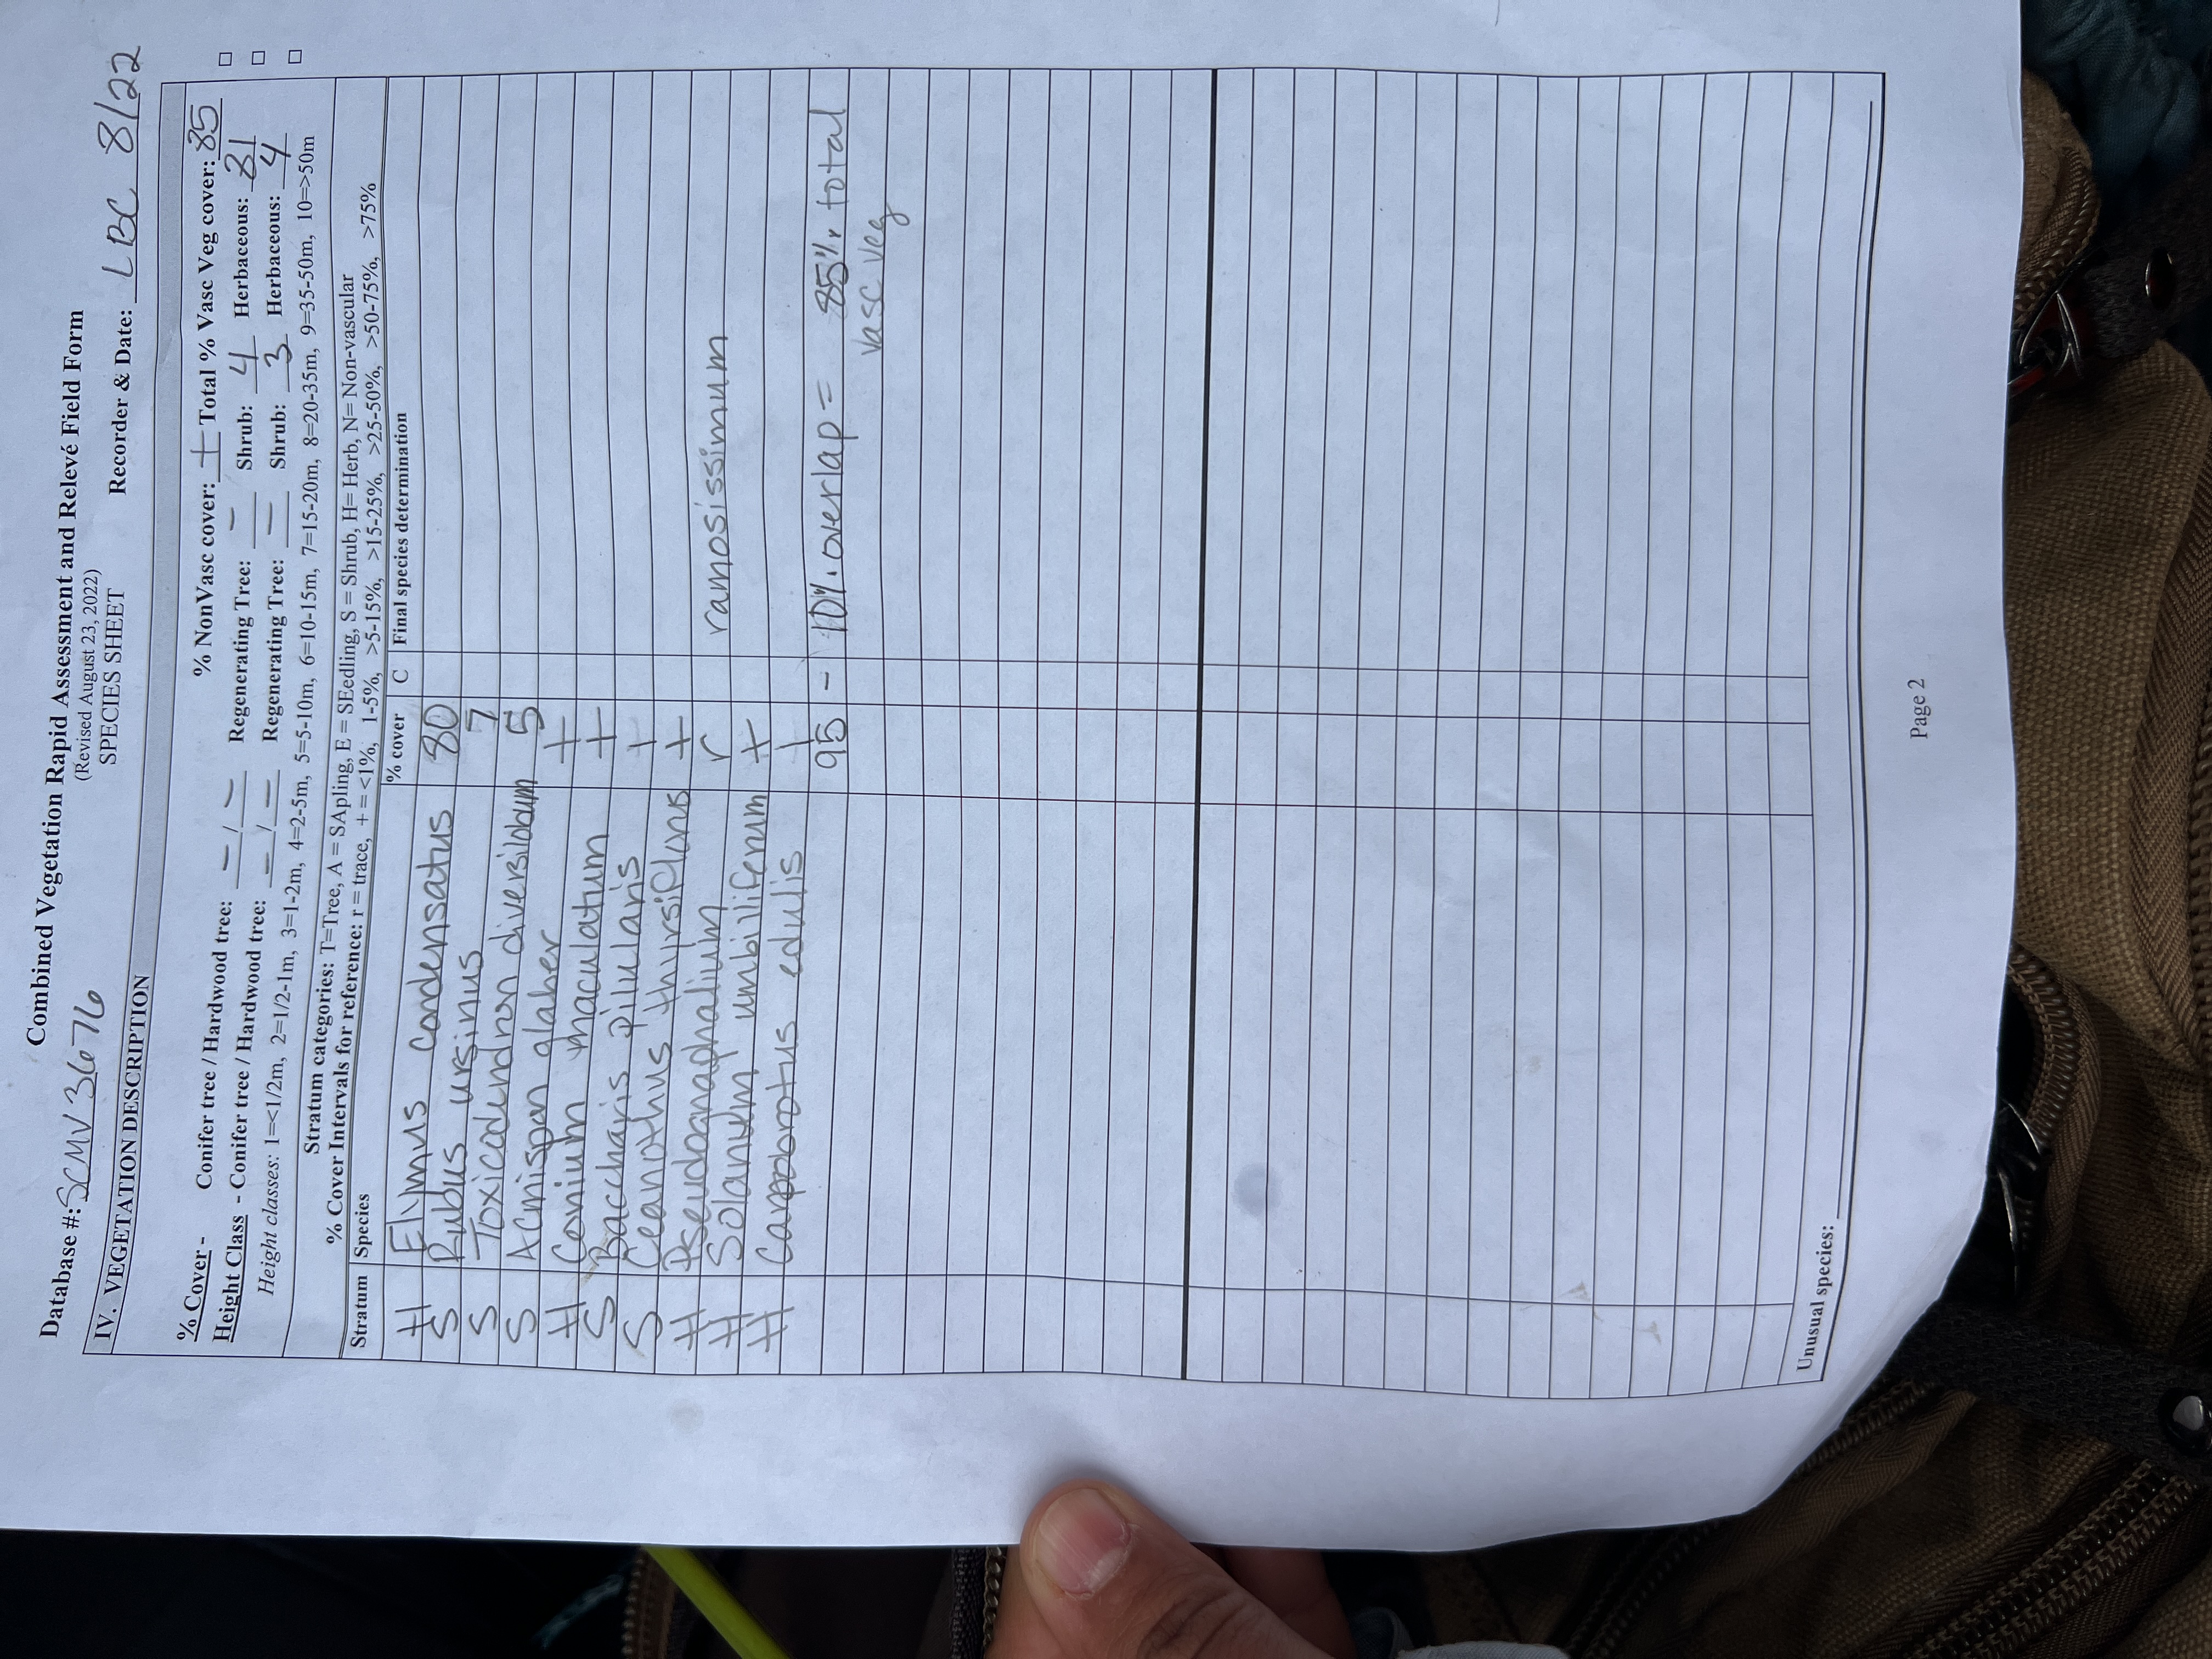 Combined Vegetation Rapid Assessment and Relevé Field Form
(Revised August 23, 2022)
Database #: SCMV3676 SPECIES SHEET Recorder & Date: LBC 8/22
IV. VEGETATION DESCRIPTION
% NonVasc cover: + Total % Vasc Veg cover: 85
% Cover - Conifer tree / Hardwood tree: — / — Regenerating Tree: — Shrub: 4 Herbaceous: 81
Height Class - Conifer tree / Hardwood tree: — / — Regenerating Tree: — Shrub: 3 Herbaceous: 4
Height classes: 1=<1/2m, 2=1/2-1m, 3=1-2m, 4=2-5m, 5=5-10m, 6=10-15m, 7=15-20m, 8=20-35m, 9=35-50m, 10=>50m
Stratum categories: T=Tree, A = SApling, E = SEedling, S = Shrub, H= Herb, N= Non-vascular
% Cover Intervals for reference: r = trace, + = <1%, 1-5%, >5-15%, >15-25%, >25-50%, >50-75%, >75%
Stratum Species % cover C Final species determination
H Elymus condensatus 80
S Rubus ursinus 7
S Toxicodendron diversilobum 5
S Acmispon glaber +
H Conium maculatum +
S Baccharis pilularis +
S Ceanothus thyrsiflorus +
H Pseudognaphalium r ramosissimum
H Solanum umbilliferum +
H Carpobrotus edulis 1
95 - 10% overlap = 85% total
vasc veg
Unusual species:
Page 2